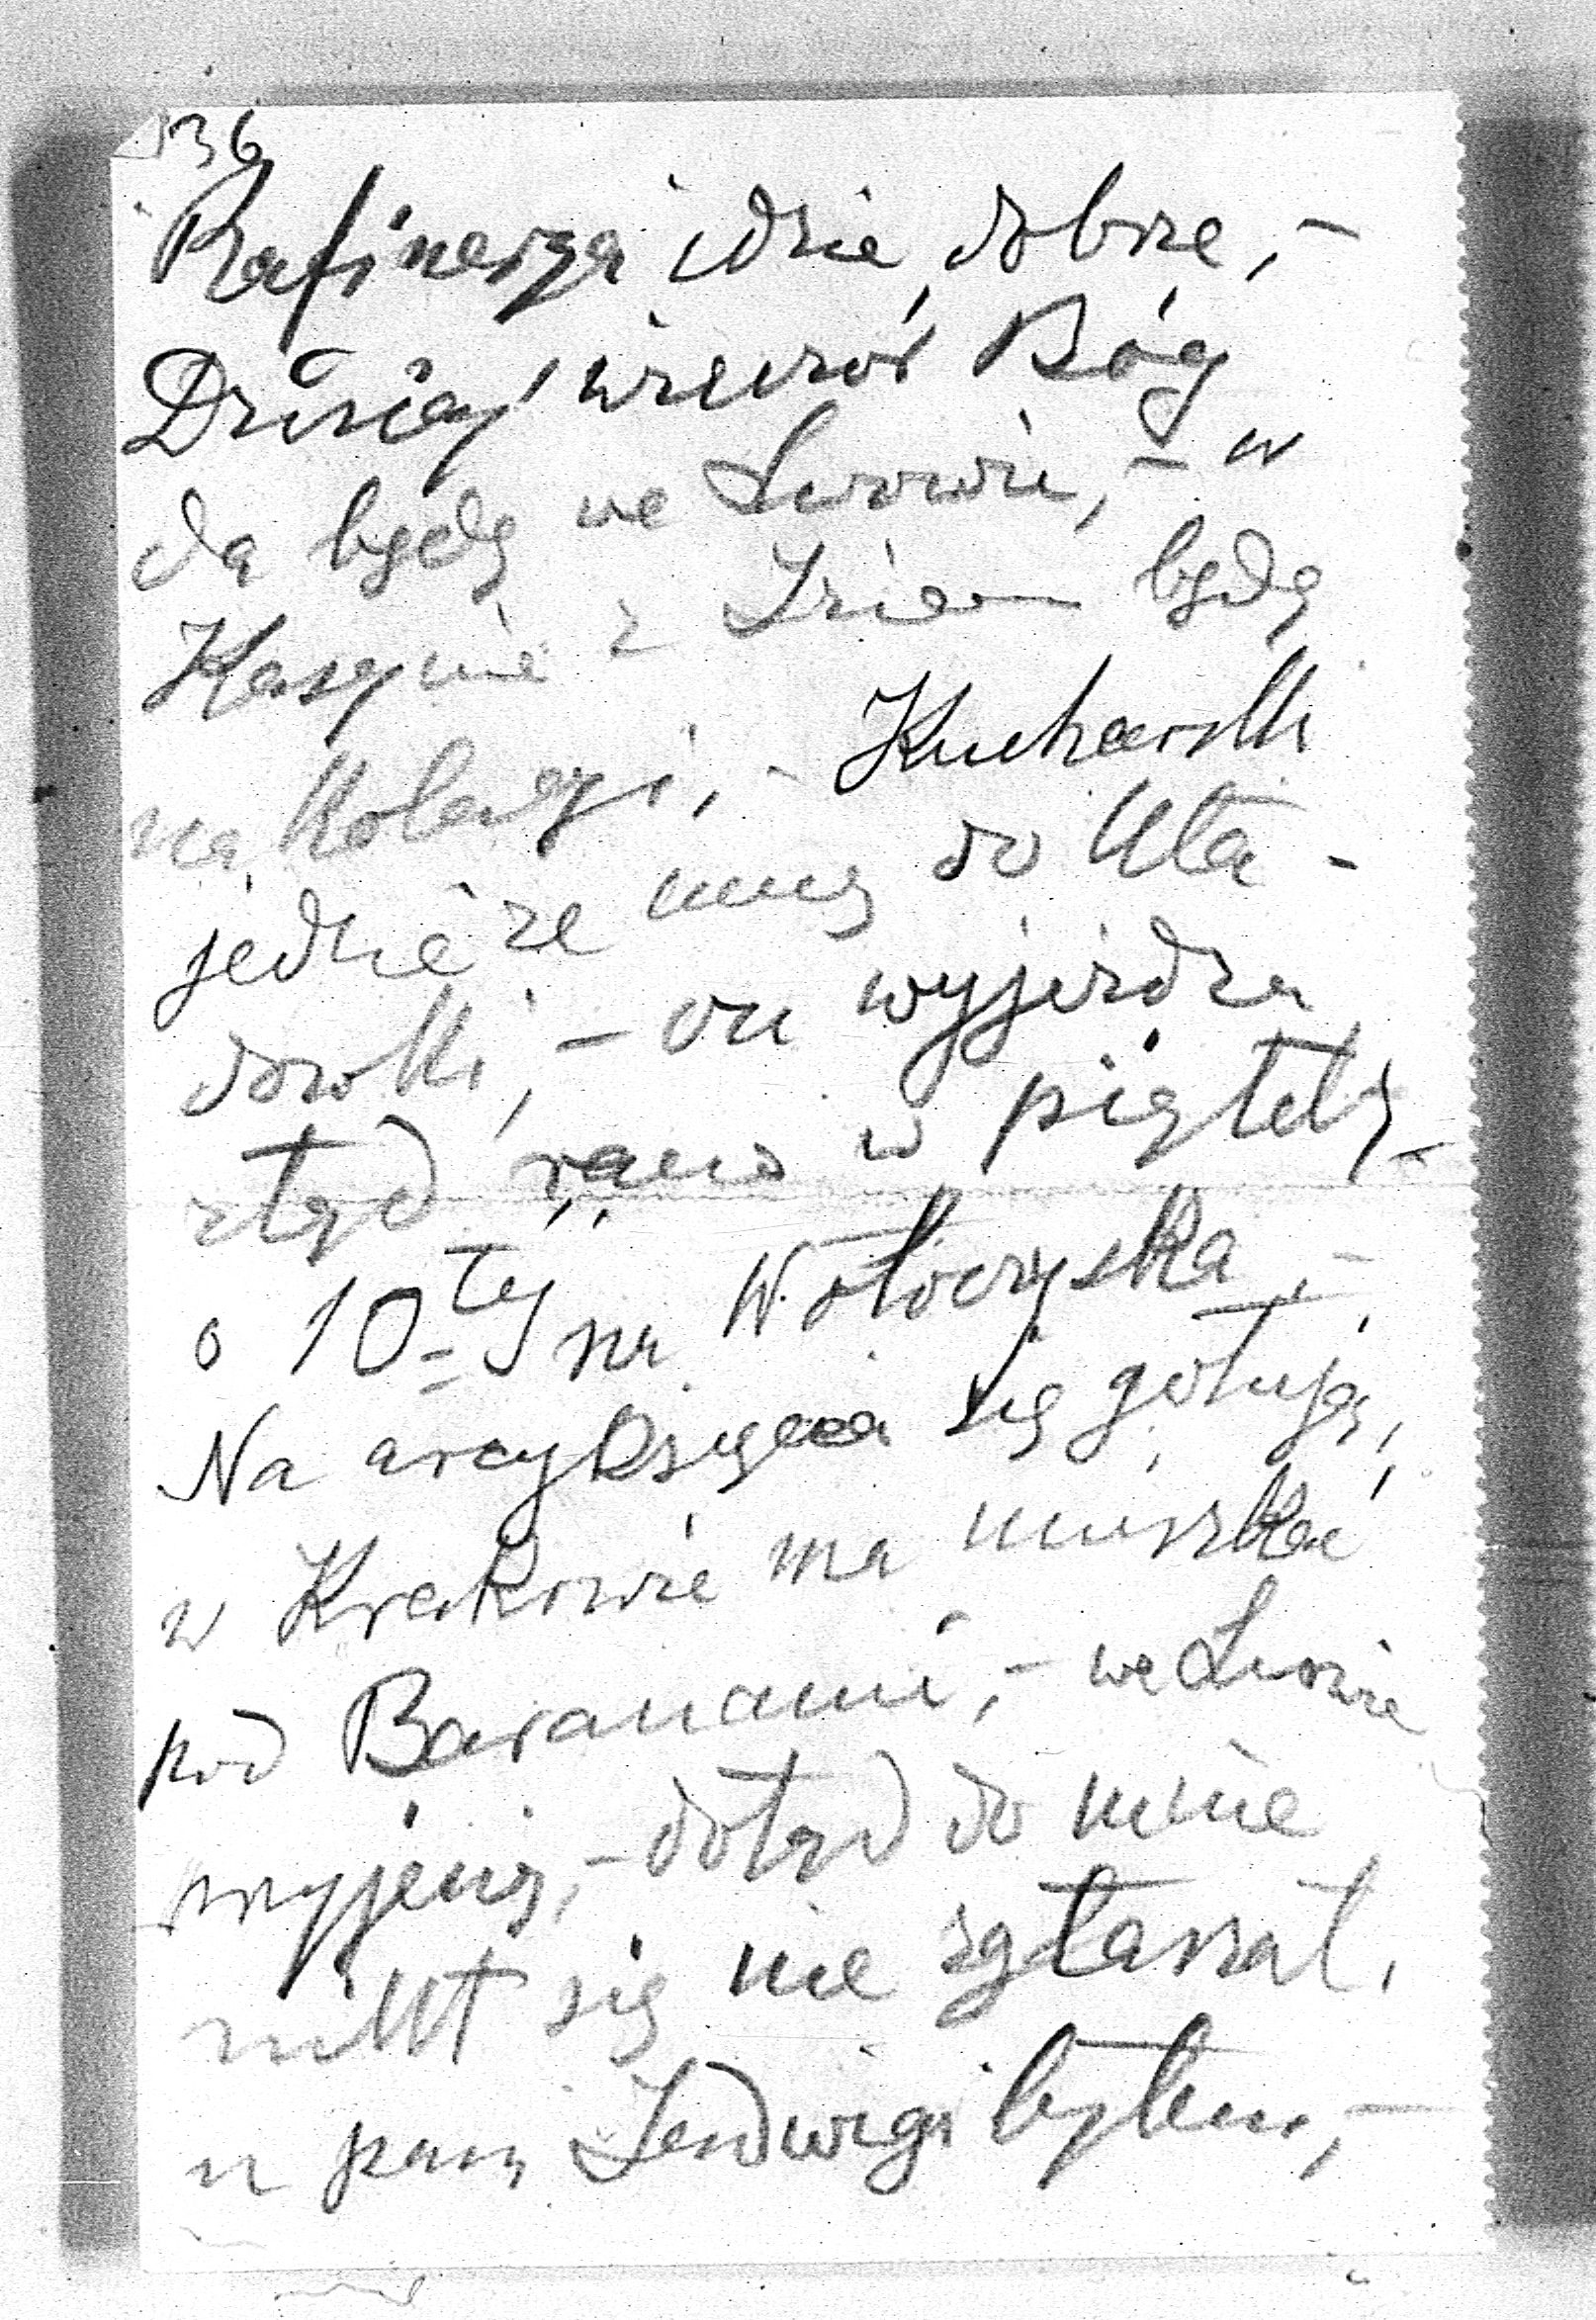 536
Rafinerya idzie dobrze, –
Dzisiaj wieczór Bóg
da będę we Lwowie, – w
Kasynie z Iziem będę
na kolacyi, – Kucharski
jedzie ze mną do Uła-
dówki, – on wyjeżdża
ztąd rano w piątek
o 10-tej na Wołoczyska, –
Na arcyksięcia się gotują,
w Krakowie ma mieszkać
pod Baranami, – we Lwowie
wyjeżdż, – dotąd do mnie
nikt się nie zgłaszał,
u pani Jadwigi byłem, –